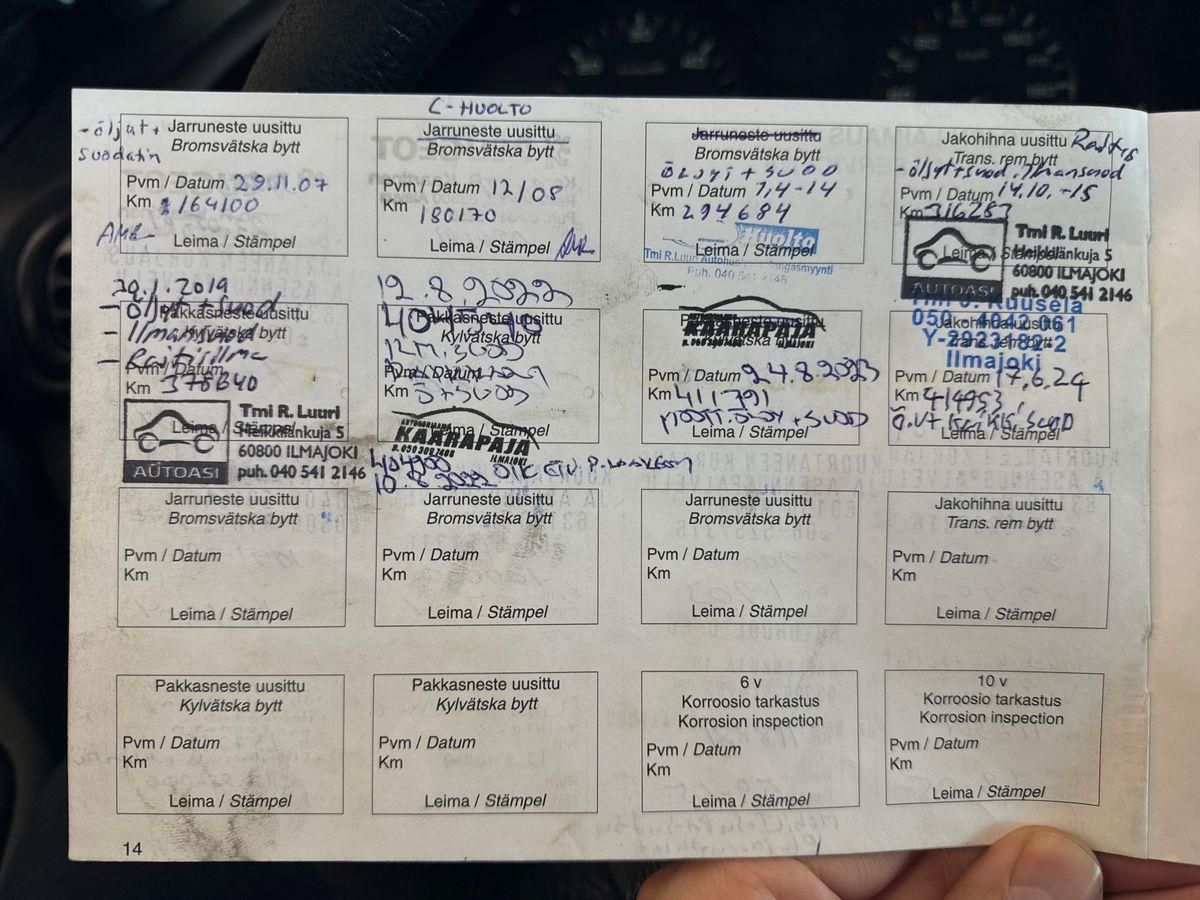 C-HUOLTO
-öljyt+
suodatin
Jarruneste uusittu
Bromsvätska bytt
Pvm / Datum 29.11.07
Km 164100
Leima / Stämpel
Jarruneste uusittu
Bromsvätska bytt
Pvm / Datum 12/08
Km 180170
Leima / Stämpel
Jarruneste uusittu
Bromsvätska bytt
ÖLJYT + SUOD
Pvm / Datum 7,4-14
Km 294684
Leima / Stämpel
Huolto
Tmi R.Luuri
Puh. 040 541 2146
Jakohihna uusittu
Trans. rem bytt
-öljyt+suod,
Pvm / Datum 14.10.-15
Km 316283
Leima / Stämpel
AUTOASI
Tmi R. Luuri
Heikkilänkuja 5
60800 ILMAJOKI
puh. 040 541 2146
29.1.2019
- Öljyt+suod
Pakkasneste uusittu
Kylvätska bytt
- Ilmansuod
- Raitisilma
Km 378640
Leima / Stämpel
AUTOASI
Tmi R. Luuri
Heikkilänkuja 5
60800 ILMAJOKI
puh. 040 541 2146
12.8.2022
Pakkasneste uusittu
Kylvätska bytt
Ö+SUOD
Leima / Stämpel
KAARAPAJA
ILMAJOKI
10.8.2022
KAARAPAJA
Pakkasneste uusittu
Kylvätska bytt
Pvm / Datum 24.8.2023
Km 411791
MOOTT. ÖLJY + SUOD
Leima / Stämpel
Tmi J. Kuusela
050 - 4042 061
Y-2923182-2
Ilmajoki
Jakohihna uusittu
Trans. rem bytt
Pvm / Datum 17,6.24
Km 414953
Leima / Stämpel
Jarruneste uusittu
Bromsvätska bytt
Pvm / Datum
Km
Leima / Stämpel
Jarruneste uusittu
Bromsvätska bytt
Pvm / Datum
Km
Leima / Stämpel
Jarruneste uusittu
Bromsvätska bytt
Pvm / Datum
Km
Leima / Stämpel
Jakohihna uusittu
Trans. rem bytt
Pvm / Datum
Km
Leima / Stämpel
Pakkasneste uusittu
Kylvätska bytt
Pvm / Datum
Km
Leima / Stämpel
Pakkasneste uusittu
Kylvätska bytt
Pvm / Datum
Km
Leima / Stämpel
6 v
Korroosio tarkastus
Korrosion inspection
Pvm / Datum
Km
Leima / Stämpel
10 v
Korroosio tarkastus
Korrosion inspection
Pvm / Datum
Km
Leima / Stämpel
14